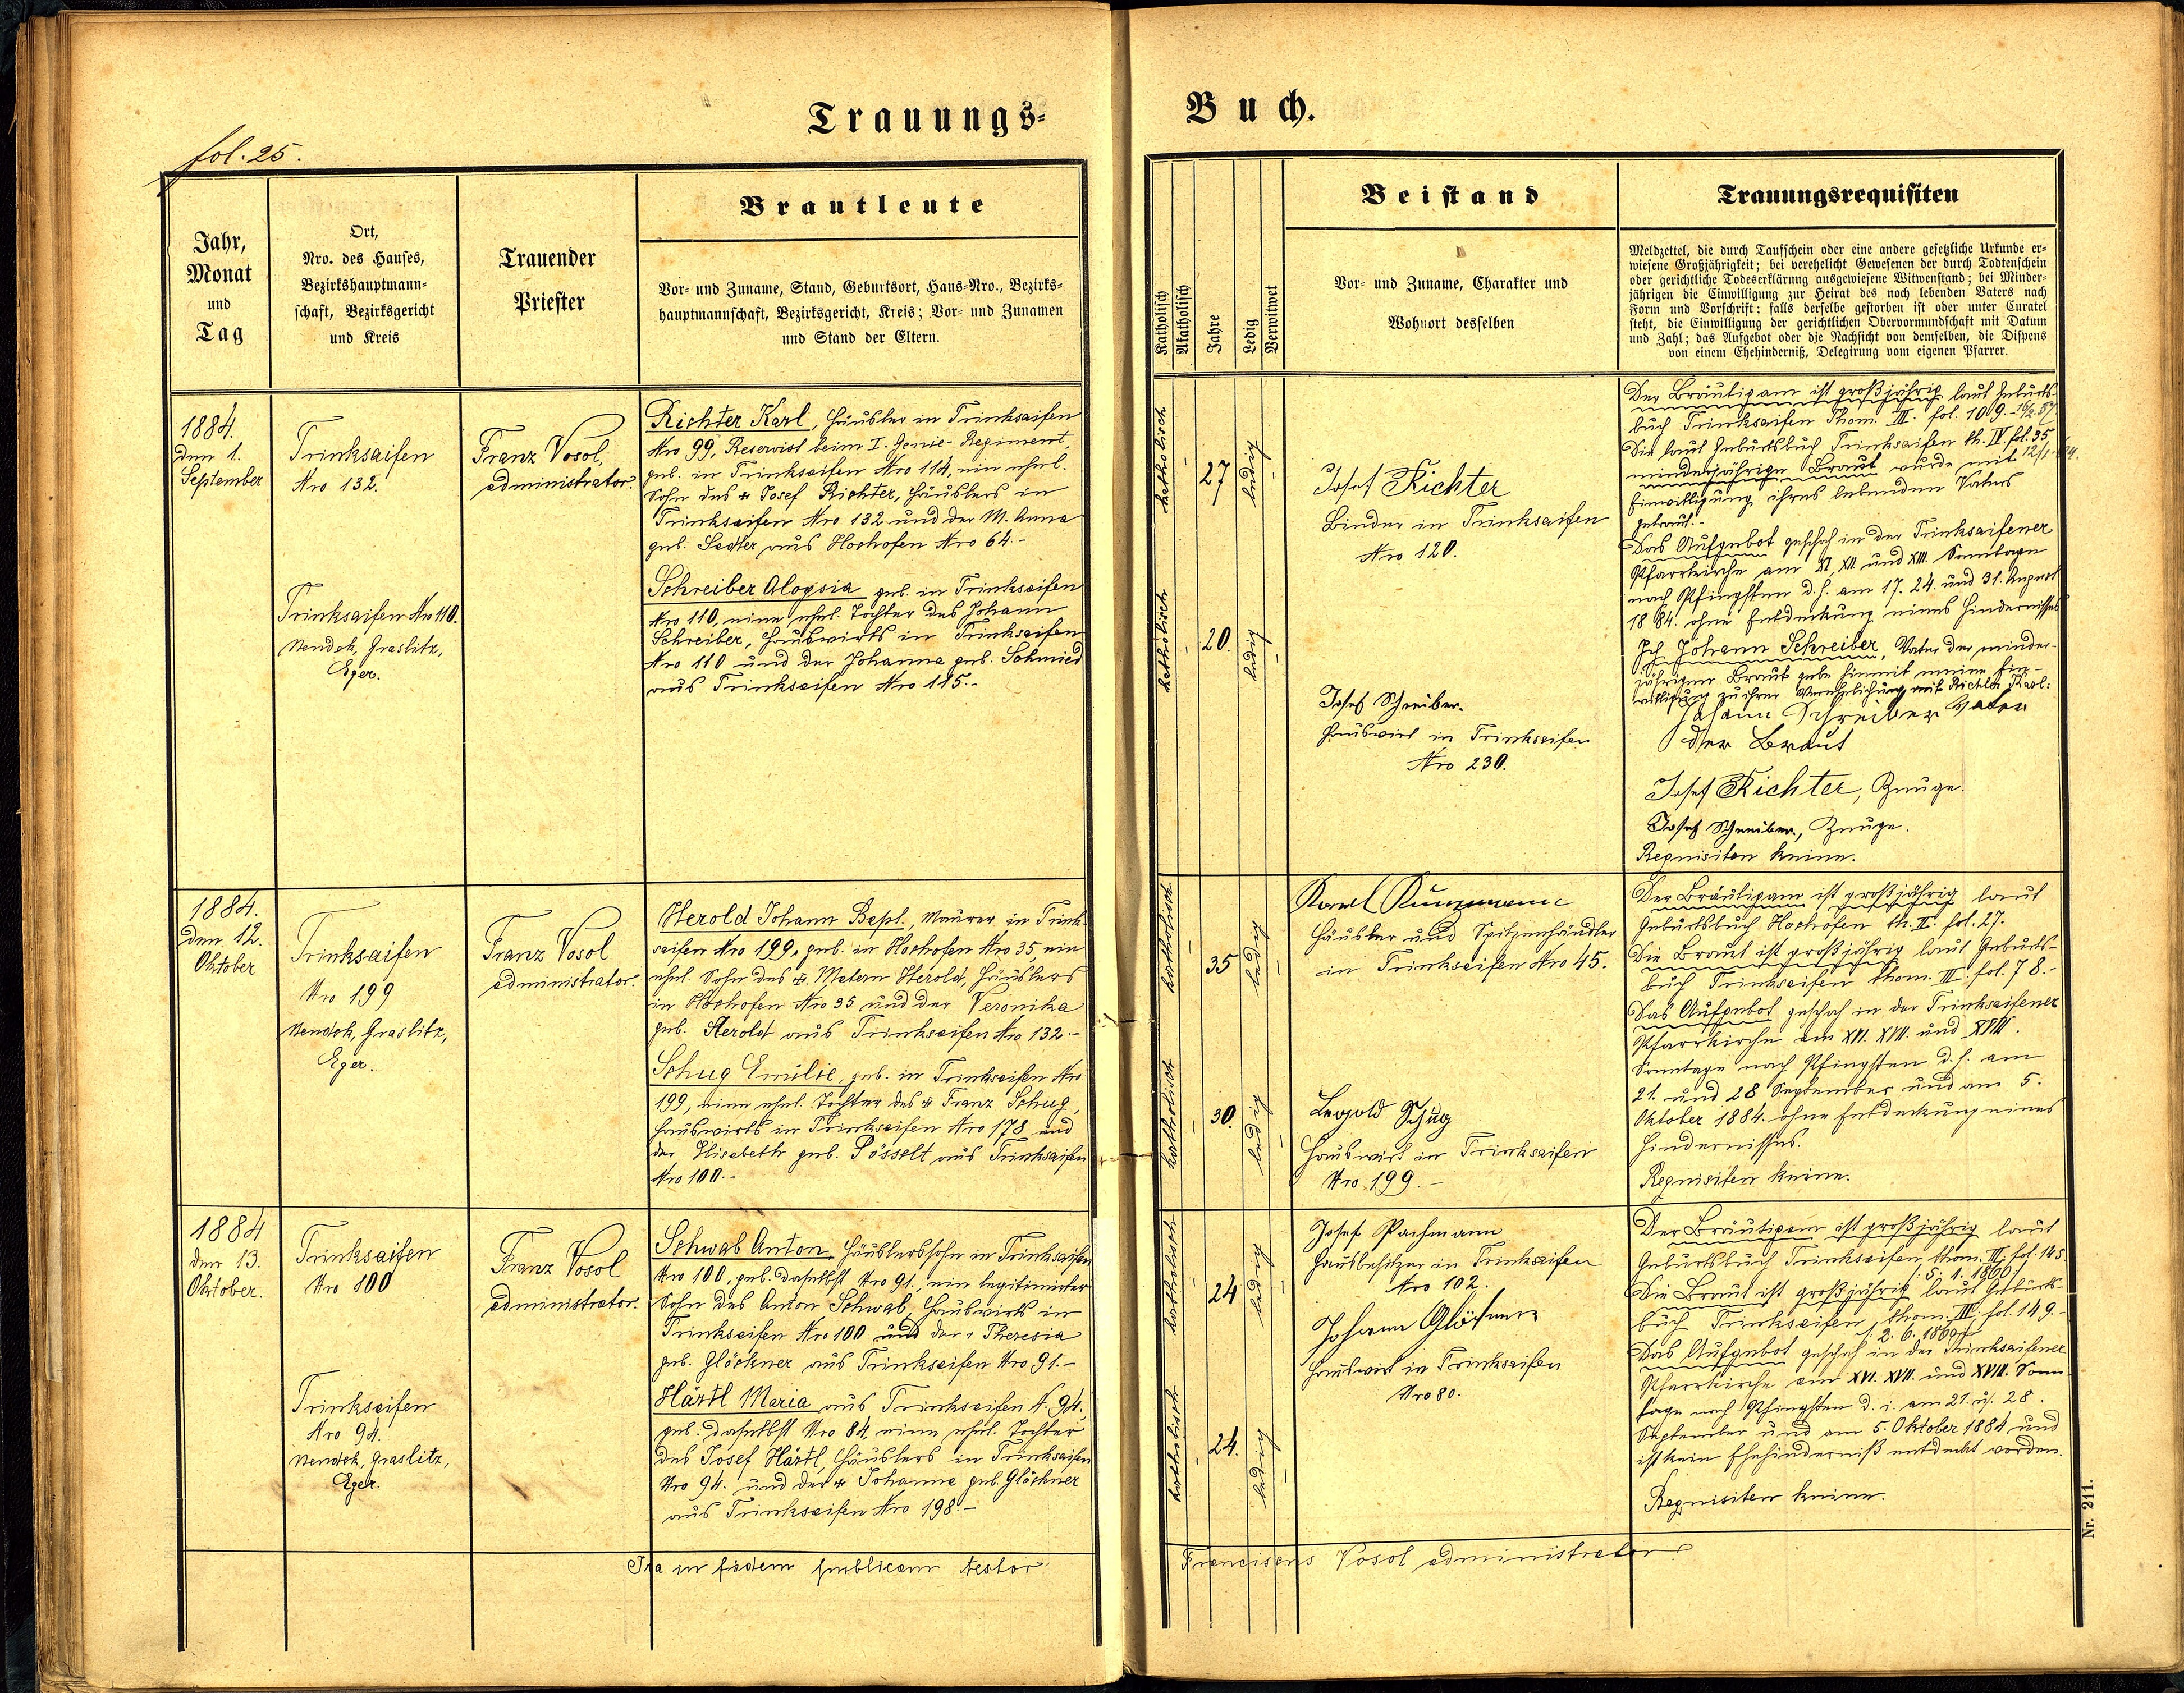 Trauungs-
Buch.
fol. 25.
Jahr,
Monat
und
Tag
Ort,
Nro. des Hauses,
Bezirkshauptmann-
schaft, Bezirksgericht
und Kreis
Trauender
Priester
Brautleute
Vor- und Zuname, Stand, Geburtsort, Haus-Nro., Bezirks-
hauptmannschaft, Bezirksgericht, Kreis; Vor- und Zunamen
und Stand der Eltern.
Katholisch
Akatholisch
Jahre
Ledig
Verwitwet
Beistand
Vor- und Zuname, Charakter und
Wohnort desselben
Trauungsrequisiten
Meldzettel, die durch Taufschein oder eine andere gesetzliche Urkunde er-
wiesene Großjährigkeit; bei verehelicht Gewesenen der durch Todtenschein
oder gerichtliche Todeserklärung ausgewiesene Witwenstand; bei Minder-
jährigen die Einwilligung zur Heirat des noch lebenden Vaters nach
Form und Vorschrift: falls derselbe gestorben ist oder unter Curatel
steht, die Einwilligung der gerichtlichen Obervormundschaft mit Datum
und Zahl; das Aufgebot oder die Nachsicht von demselben, die Dispens
von einem Ehehinderniß, Delegirung vom eigenen Pfarrer.
1884.
den 1.
September
Trinksaifen
Nro 132.
Trinksaifen Nro 110.
Neudek, Graslitz,
Eger.
Franz Vosol,
administrator.
Richter Karl, Häusler in Trinksaifen
Nro 99, Reservist beim I. Genie-Regiment,
geb. in Trinksaifen Nro 114, ein ehel.
Sohn des Josef Richter, Häuslers in
Trinksaifen Nro 132 und der M. Anna
geb. Sadler aus Hochofen Nro 64.-
Schreiber Aloysia geb. in Trinksaifen
Nro 110, eine ehel. Tochter des Johann
Schreiber, Hauswirts in Trinksaifen
Nro 110 und der Johanna geb. Schmied
aus Trinksaifen Nro 115.-
katholisch
27
ledig
katholisch
20.
ledig
Josef Richter
Binder in Trinksaifen
Nro 120.
Josef Schreiber.
Hauswirt in Trinksaifen
Nro 230.
Der Bräutigam ist großjährig laut Geburts-
buch Trinksaifen Thom. III. fol. 109.
Die laut Geburtsbuch Trinksaifen th. IV. fol. 35,
minderjährige Braut wurde mit
Einwilligung ihres lebenden Vaters
getraut.-
Das Aufgebot geschah in der Trinksaifener
Pfarrkirche am XI. XII. und XIII. Sonntage
nach Pfingsten d. h. am 17. 24. und 31. August
1884. ohne Entdeckung eines Hindernisses
Ich Johann Schreiber, Vater der minder-
jährigen Braut gebe hiemit meine Ein-
willigung zu ihrer Verehelichung mit Richter Karl:
Johann Schreiber Vater
der Braut
Josef Richter, Zeuge.
Josef Schreiber, Zeuge.
Requisiten keine.
1884.
den 12.
Oktober
Trinksaifen
Nro 199
Neudek, Graslitz,
Eger.
Franz Vosol
administrator.
Herold Johann Bapt., Maurer in Trink-
saifen Nro 199, geb. in Hochofen Nro 35, ein
ehel. Sohn des Matern Herold, Häuslers
in Hochofen Nro 35 und der Veronika
geb. Herold aus Trinksaifen Nro 132.-
Schug Emilie, geb. in Trinksaifen Nro
199, eine ehel. Tochter des Franz Schug,
Hauswirts in Trinksaifen Nro 178 und
der Elisabeth geb. Pösselt aus Trinksaifen
Nro 100.-
katholisch
35
ledig
katholisch
30.
ledig
Karl Kunzmann
Häusler und Spitzenhändler
in Trinksaifen Nro 45.
Leopold Schug
Hauswirt in Trinksaifen
Nro 199.-
Der Bräutigam ist großjährig laut
Geburtsbuch Hochofen th. II. fol. 27.
Die Braut ist großjährig laut Geburts-
buch Trinksaifen thom. III. fol. 78.-
Das Aufgebot geschah in der Trinksaifener
Pfarrkirche am XVI. XVII. und XVIII.
Sonntage nach Pfingsten d. h. am
21. und 28 September und am 5.
Oktober 1884. ohne Entdeckung eines
Hindernisses.
Requisiten keine.
1884
den 13.
Oktober.
Trinksaifen
Nro 100
Trinksaifen
Nro 94.
Neudek, Graslitz,
Eger.
Franz Vosol
administrator.
Schwab Anton, Häuslerssohn in Trinksaifen
Nro 100, geb. daselbst Nro 91, ein legitimirter
Sohn des Anton Schwab, Hauswirts in
Trinksaifen Nro 100 und der Theresia
geb. Glöckner aus Trinksaifen Nro 91.-
Härtl Maria aus Trinksaifen N. 94,
geb. daselbst Nro 84, eine ehel. Tochter
des Josef Härtl, Häuslers in Trinksaifen
Nro 94. und der Johanna geb. Glöckner
aus Trinksaifen Nro 198.-
katholisch
24
ledig
katholisch
24.
ledig
Josef Pachmann
Hausbesitzer in Trinksaifen
Nro 102.
Johann Glöckner
Hauswirt in Trinksaifen
Nro 80.
Der Bräutigam ist großjährig laut
Geburtsbuch Trinksaifen, thom. III. fol. 145.
5. 1. 1860
Die Braut ist großjährig laut Geburts-
buch Trinksaifen thom. III. fol. 149.-
2. 6. 1860
Das Aufgebot geschah in der Trinksaifener
Pfarrkirche am XVI. XVII. und XVIII. Sonn-
tage nach Pfingsten d. i. am 21. u. 28.
September und am 5. Oktober 1884 und
ist kein Ehehinderniß entdeckt worden.
Requisiten keine.
Ita in fidem publicam testor
Franciscus Vosol administrator
Nr. 211.